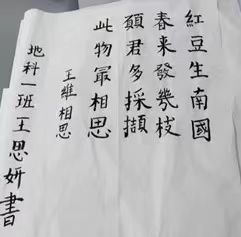 紅豆生南國
春来發幾枝
願君多採擷
此物最相思
王維相思
地科一班王思妍書